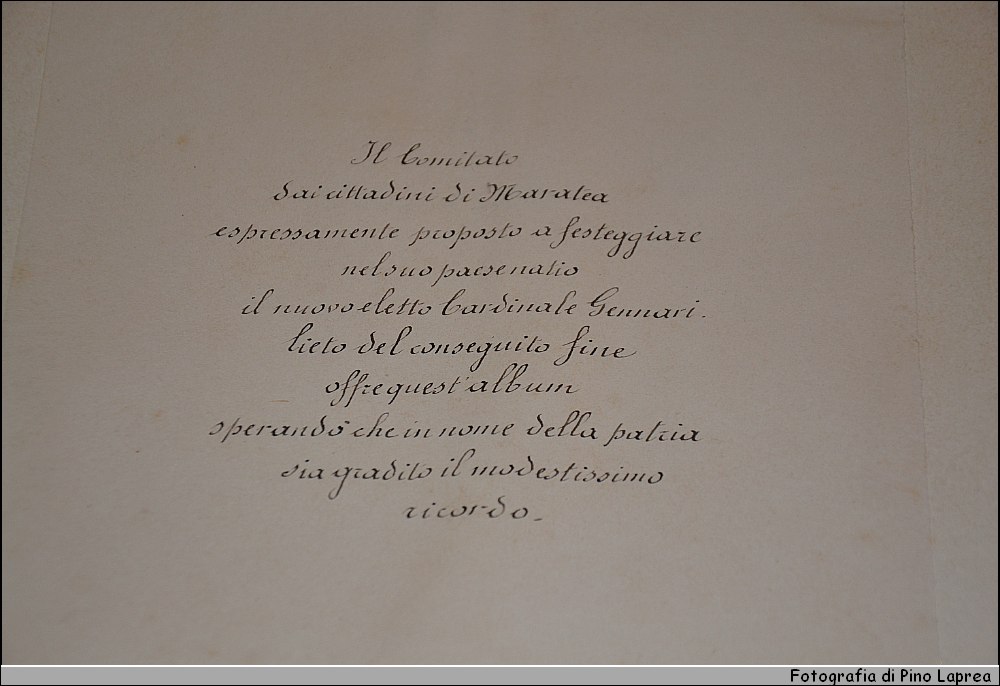 Il Comitato
dai cittadini di Maratea
espressamente proposto a festeggiare
nel suo paese natio
il nuovo eletto Cardinale Gennari.
lieto del conseguito fine
offre quest'album
sperando che in nome della patria
sia gradito il modestissimo
ricordo.
Fotografia di Pino Laprea